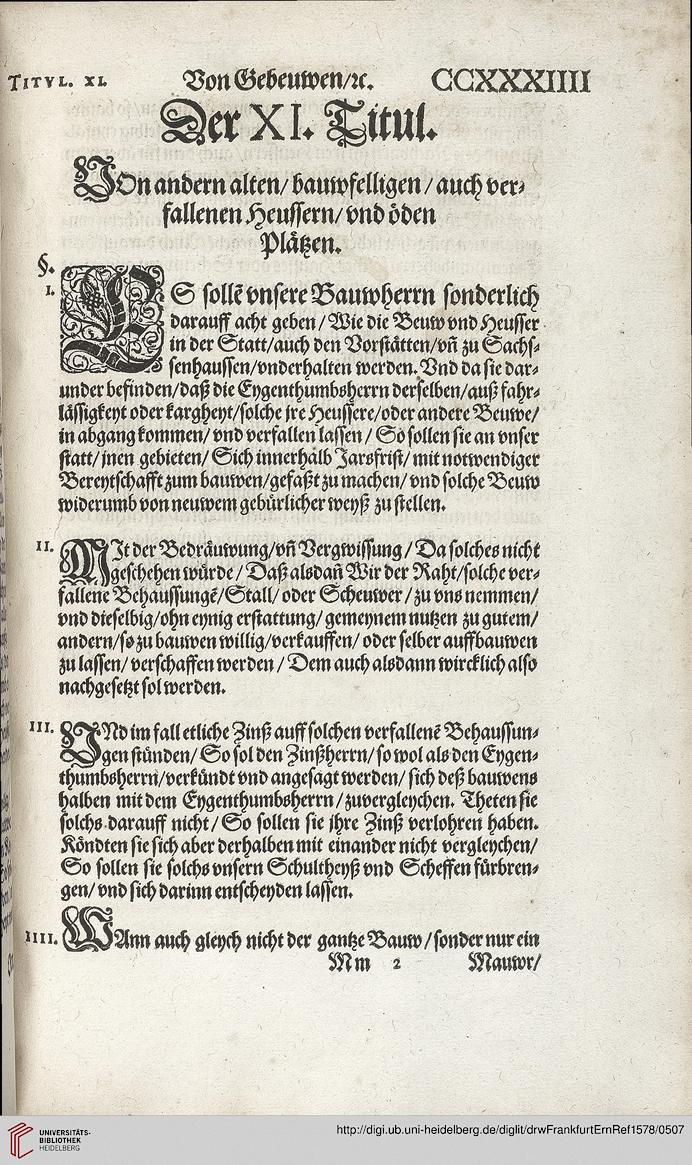 TITVL. XI. Von Gebeuwen/ꝛc. CCXXXIIII
Der XI. Titul.
VOn andern alten/ bauwfelligen / auch ver⸗
fallenen Heussern/ vnd öden
Plätzen.
§.
I. ES sollẽ vnsere Bauwherrn sonderlich
darauff acht geben / Wie die Beuw vnd Heusser
in der Statt/auch den Vorstätten/vñ zu Sachs⸗
senhaussen/vnderhalten werden. Vnd da sie dar⸗
under befinden/daß die Eygenthumbsherrn derselben/auß fahr⸗
lässigkeyt oder kargheyt/solche jre Heussere/oder andere Beuwe/
in abgang kommen/ vnd verfallen lassen / So sollen sie an vnser
statt/ jnen gebieten/ Sich innerhalb Jarsfrist/ mit notwendiger
Bereytschafft zum bauwen/gefaßt zu machen/ vnd solche Beuw
widerumb von neuwem gebürlicher weyß zu stellen.
II. MIt der Bedräuwung/vñ Vergwissung / Da solches nicht
geschehen würde / Daß alsdañ Wir der Raht/solche ver⸗
fallene Behaussungẽ/Stall/ oder Scheuwer / zu vns nemmen/
vnd dieselbig/ohn eynig erstattung/ gemeynem nutzen zu gutem/
andern/so zu bauwen willig/verkauffen/ oder selber auffbauwen
zu lassen/ verschaffen werden / Dem auch alsdann wircklich also
nachgesetzt sol werden.
III. VNd im fall etliche Zinß auff solchen verfallenẽ Behaussun⸗
gen stünden/ So sol den Zinßherrn/ so wol als den Eygen⸗
thumbsherrn/verkündt vnd angesagt werden/ sich deß bauwens
halben mit dem Eygenthumbsherrn / zuvergleychen. Theten sie
solchs darauff nicht / So sollen sie jhre Zinß verlohren haben.
Köndten sie sich aber derhalben mit einander nicht vergleychen/
So sollen sie solchs vnsern Schultheyß vnd Scheffen fürbren⸗
gen/ vnd sich darinn entscheyden lassen.
IIII. WAnn auch gleych nicht der gantze Bauw / sonder nur ein
Mm 2 Mauwr/
UNIVERSITÄTS-
BIBLIOTHEK
HEIDELBERG
http://digi.ub.uni-heidelberg.de/diglit/drwFrankfurtErnRef1578/0507